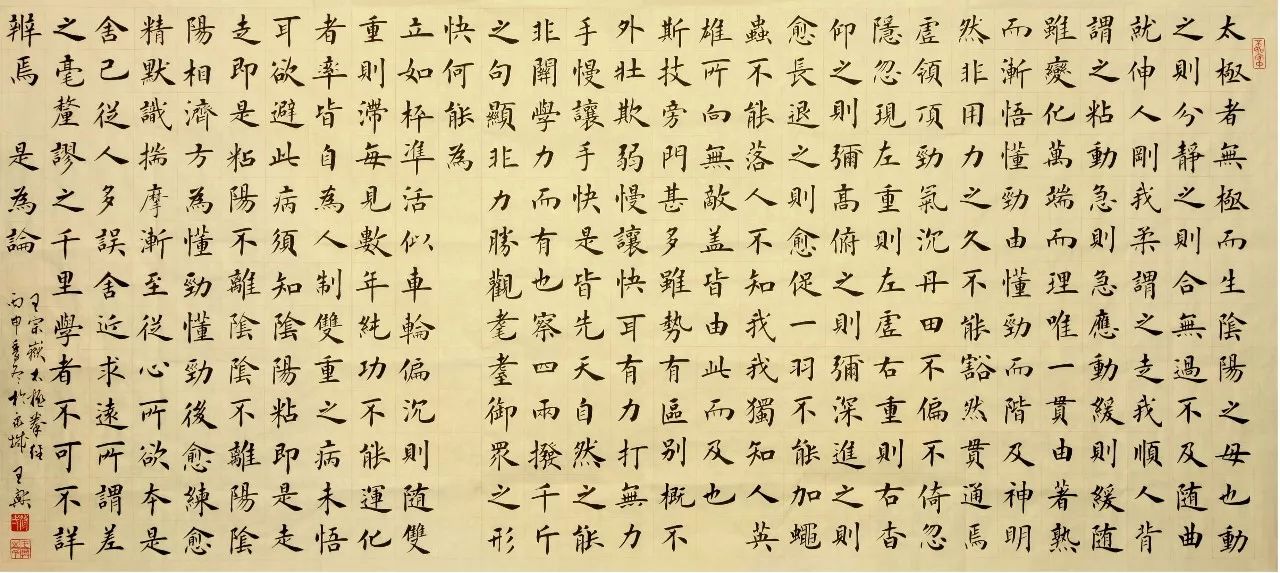 太極者無極而生陰陽之母也動
之則分靜之則合無過不及随曲
就伸人剛我柔謂之走我順人背
謂之粘動急則急應動緩則緩随
雖變化萬端而理唯一貫由著熟
而漸悟懂勁由懂勁而階及神明
然非用力之久不能豁然貫通焉
虛領頂勁氣沉丹田不偏不倚忽
隱忽現左重則左虛右重則右杳
仰之則彌高俯之則彌深進之則
愈長退之則愈促一羽不能加蠅
蟲不能落人不知我我獨知人英
雄所向無敵盖皆由此而及也
斯技旁門甚多雖勢有區别概不
外壮欺弱慢讓快耳有力打無力
手慢讓手快是皆先天自然之能
非關學力而有也察四兩撥千斤
之句顯非力勝觀耄耋御眾之形
快何能為
立如枰準活似車輪偏沉則随雙
重則滯每見數年純功不能運化
者率皆自為人制雙重之病未悟
耳欲避此病須知陰陽粘即是走
走即是粘陽不離陰陰不離陽陰
陽相濟方為懂勁懂勁後愈練愈
精默識揣摩漸至從心所欲本是
舍己從人多誤舍近求遠所謂差
之毫釐謬之千里學者不可不詳
辨焉 是為論
王宗嶽太極拳經
丙申 於 城 王